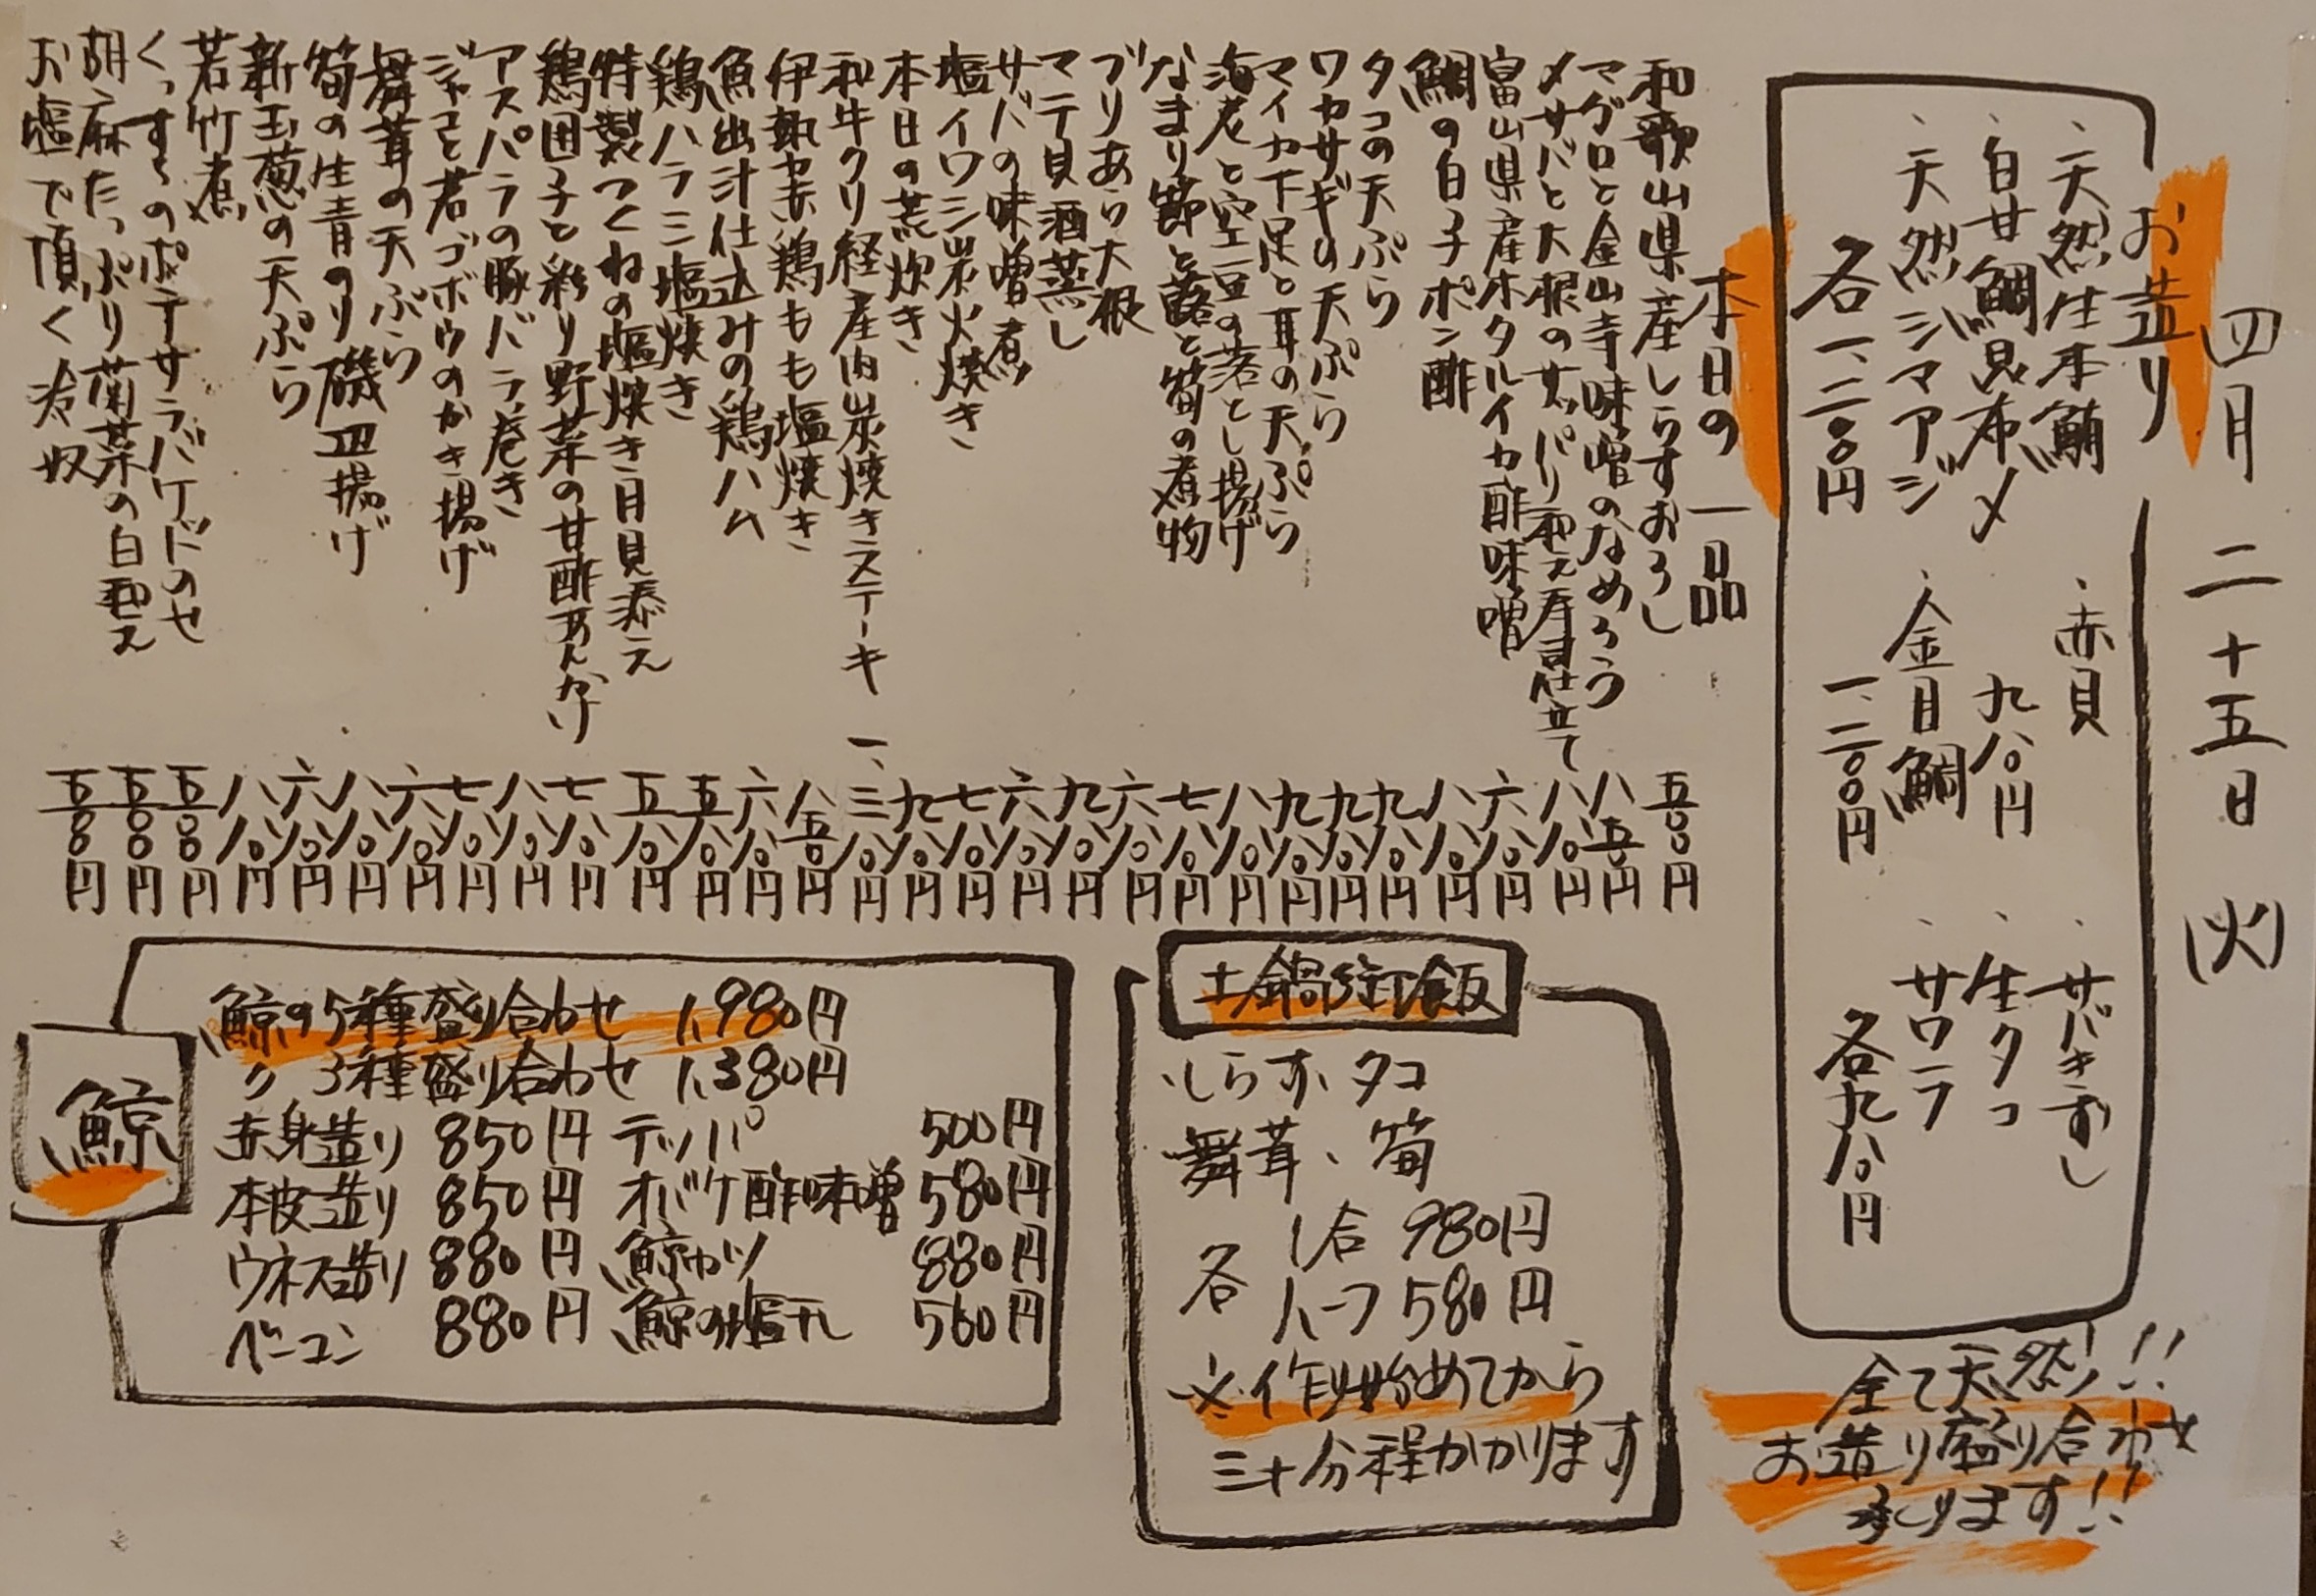 四月二十五日(火)
お造り
、天然生本鮪
、白甘鯛昆布〆
、天然シマアジ
各一、二〇〇円
、赤貝
九八〇円
、金目鯛
一、二〇〇円
、サバきずし
、生タコ
、サワラ
各九八〇円
全て天然!!
お造り盛り合わせ
承ります!!
本日の一品
和歌山県産しらすおろし 五〇〇円
マグロと金山寺味噌のなめろう 八五〇円
〆サバと大根のサッパリ和え寿司仕立て 八八〇円
富山県産ホタルイカ酢味噌 六八〇円
鯛の白子ポン酢 八八〇円
タコの天ぷら 九八〇円
ワカサギの天ぷら 九八〇円
マイカ下足と耳の天ぷら 九八〇円
海老と空豆の落とし揚げ 八八〇円
なまり節と蕗と筍の煮物 七八〇円
ブリあら大根 六八〇円
マテ貝酒蒸し 九八〇円
サバの味噌煮 六八〇円
塩イワシ炭火焼き 七八〇円
本日の荒炊き 九八〇円
和牛クリ経産肉炭焼きステーキ 一、三八〇円
伊勢赤鶏もも塩焼き 八五〇円
魚出汁仕込みの鶏ハム 六八〇円
鶏ハラミ塩焼き 五八〇円
特製つくねの塩焼き月見添え 五八〇円
鶏団子と彩り野菜の甘酢あんかけ 七八〇円
アスパラの豚バラ巻き 八八〇円
ジャコと若ゴボウのかき揚げ 七八〇円
舞茸の天ぷら 六八〇円
筍の生青のり磯辺揚げ 八八〇円
新玉葱の天ぷら 六八〇円
若竹煮 八八〇円
くっすのポテサラバケドのせ 五〇〇円
胡麻たっぷり菊菜の白和え 五〇〇円
お塩で頂く冷奴 五〇〇円
土鍋御飯
、しらす、タコ
舞茸、筍
各 1合 980円
ハーフ 580円
※作り始めてから
三十分程かかります
鯨
鯨の5種盛り合わせ 1,980円
〃 3種盛り合わせ 1,380円
赤身造り 850円 テッパ 500円
本皮造り 850円 オバケ酢味噌 580円
ウネス造り 880円 鯨カツ 880円
ベーコン 880円 鯨の塩干し 560円